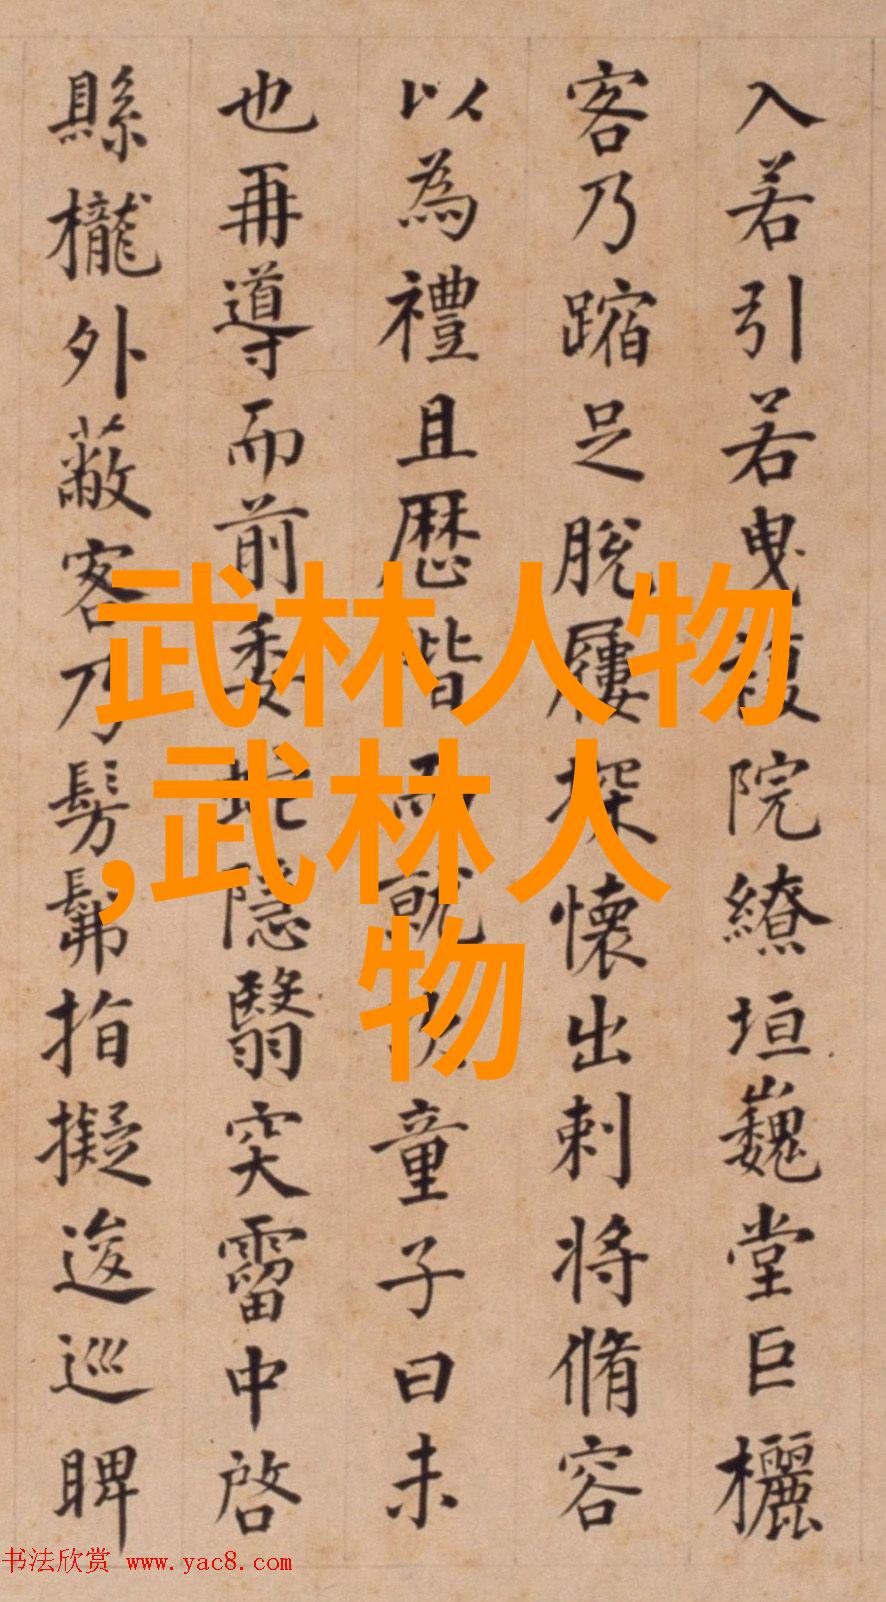 入若引若曳複院繚垣巍堂巨欐
客乃蹜足脫屨探懷出刺將脩容
以為禮且歷階而就次童子曰未
也再導而前委蛇隱翳穾霤中啓
縣櫳外蔽客乃髣髴指擬逡巡睥
武林人物
,武林人
物
书法欣赏 www.yac8.com